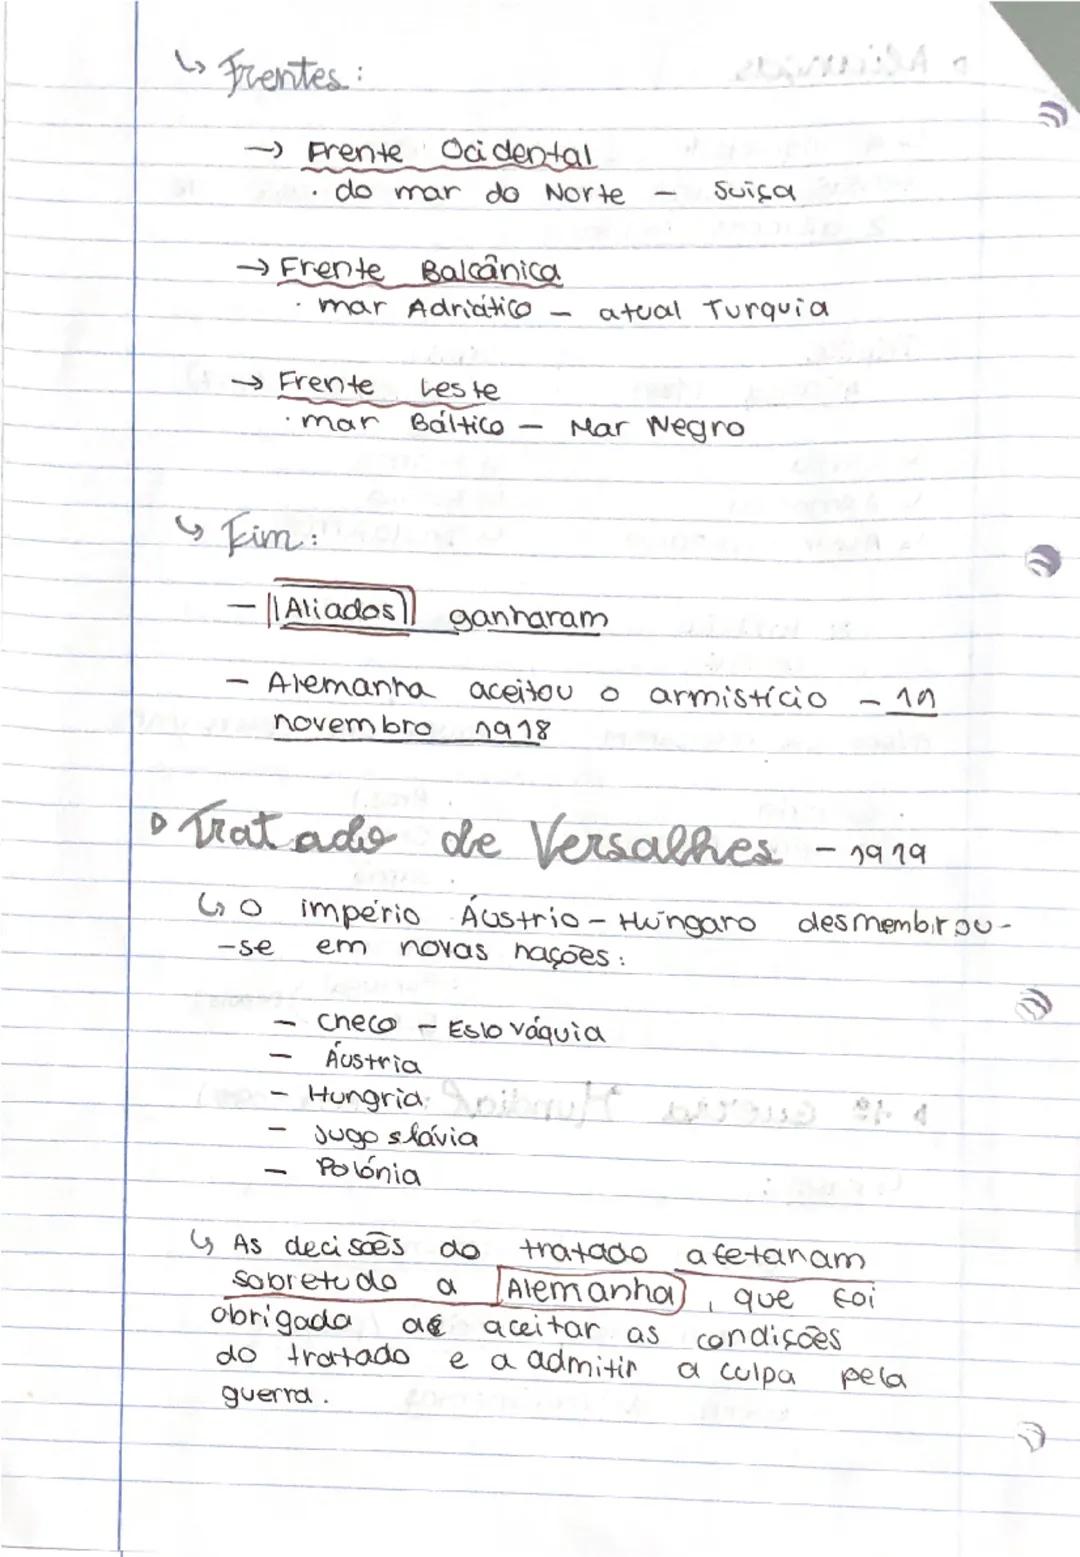 ↳ Frentes:
→ Frente Ocidental
. do mar do Norte - Suiça
→ Frente Balcânica
. mar Adriático - atual Turquia
→ Frente Leste
. mar Báltico - Mar Negro
↳ Fim:
- Aliados ganharam
- Alemanha aceitou o armistício - 11
novembro 1918
▷ Tratado de Versalhes - 1919
↳ O império Áustrio-Húngaro desmembrou-
-se em novas nações:
- Checo - Eslováquia
- Áustria
- Hungria
- Jugoslávia
- Polónia
↳ As decisões do tratado afetaram
sobretudo a Alemanha, que foi
obrigada a aceitar as condições
do tratado e a admitir a culpa pela
guerra.